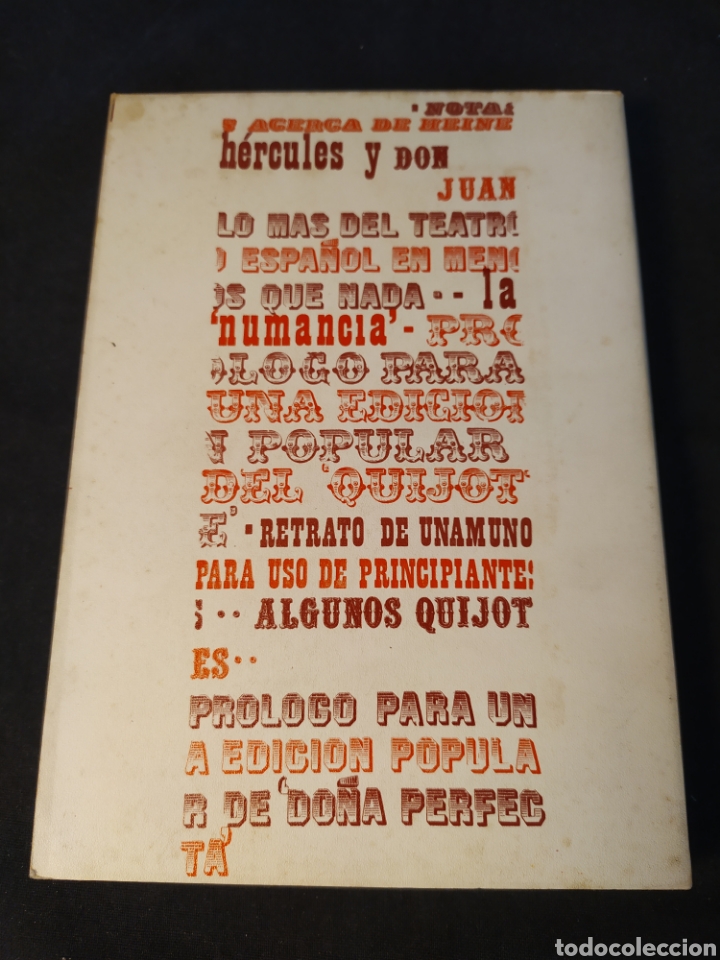 · NOTAS
S ACERCA DE HEINE
hércules y DON
JUAN
LO MAS DEL TEATRO
O ESPAÑOL EN MENO
OS QUE NADA · · la
'numancia' - PRO
OLOGO PARA
UNA EDICION
N POPULAR
DEL 'QUIJOT
E' · RETRATO DE UNAMUNO
PARA USO DE PRINCIPIANTES
S · · ALGUNOS QUIJOT
ES · ·
PROLOGO PARA UN
A EDICION POPULA
R DE 'DOÑA PERFEC
TA'
todocoleccion